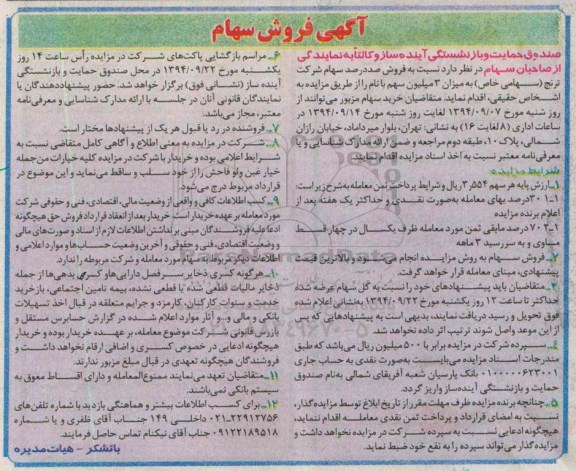 آگهی فروش سهام
صندوق حمایت و بازنشستگی آینده ساز و کالتاً به نمایندگی
از صاحبان سهام در نظر دارد نسبت به فروش صددرصد سهام شرکت
ترنج (سهامی خاص) به میزان ۳ میلیون سهم بانام را از طریق مزایده به
اشخاص حقیقی، اقدام نماید. متقاضیان خرید سهام مزبور می‌توانند از
روز شنبه مورخ ۱۳۹۴/۰۹/۰۷ لغایت روز شنبه مورخ ۱۳۹۴/۰۹/۱۴ در
ساعات اداری (۸ لغایت ۱۶) به نشانی: تهران، بلوار میرداماد، خیابان رازان
شمالی، پلاک ۱۰، طبقه دوم مراجعه و ضمن ارائه مدارک شناسایی و یا
معرفی‌نامه معتبر نسبت به اخذ اسناد مزایده اقدام نمایند.
شرایط مزایده
۱ـ ارزش پایه هر سهم ۳٫۵۵۴ ریال و شرایط پرداخت ثمن معامله به‌شرح زیر است:
۱-۱ ۳۰ درصد بهای معامله به‌صورت نقدی و حداکثر یک هفته بعد از
اعلام برنده مزایده
۱-۲ ۷۰ درصد مابقی ثمن مورد معامله ظرف یکسال در چهار قسط
مساوی و به سررسید ۳ ماهه
۲ـ فروش سهام به روش مزایده انجام می‌شود و بالاترین قیمت
پیشنهادی، مبنای معامله قرار خواهد گرفت.
۳ـ متقاضیان باید پیشنهادهای خود را نسبت به کل سهام عرضه شده
حداکثر تا ساعت ۱۲ روز یکشنبه مورخ ۱۳۹۴/۰۹/۲۲ به نشانی اعلام شده
فوق تحویل و رسید دریافت نمایند، بدیهی است به پیشنهادهایی که پس
از این موعد واصل شوند ترتیب اثر داده نخواهد شد.
۴ـ سپرده شرکت در مزایده برابر با ۵۰۰ میلیون ریال می‌باشد که طبق
مندرجات اسناد مزایده می‌بایست به‌صورت نقدی به حساب جاری
بانک پارسیان شعبه آفریقای شمالی به‌نام صندوق
حمایت و بازنشستگی آینده‌ساز واریز گردد.
۵ـ چنانچه برنده مزایده ظرف مهلت مقرر از تاریخ ابلاغ توسط مزایده‌گذار،
نسبت به امضای قرارداد و پرداخت ثمن نقدی معامله اقدام ننماید،
هیچگونه ادعایی نسبت به سپرده شرکت در مزایده نخواهد داشت و
مزایده‌گذار می‌تواند سپرده را به نفع خود ضبط نماید.
۶ـ مراسم بازگشایی پاکت‌های شرکت در مزایده رأس ساعت ۱۴ روز
یکشنبه مورخ ۱۳۹۴/۰۹/۲۲ در محل صندوق حمایت و بازنشستگی
آینده ساز (نشانی فوق) برگزار خواهد شد. حضور پیشنهاددهندگان یا
نمایندگان قانونی آنان در جلسه با ارائه مدارک شناسایی و معرفی‌نامه
معتبر، مجاز می‌باشد.
۷ـ فروشنده در رد یا قبول هر یک از پیشنهادها مختار است.
۸ـ شرکت در مزایده به معنی اطلاع و آگاهی کامل متقاضی نسبت به
شرایط اعلامی بوده و خریدار با شرکت در مزایده کلیه خیارات من جمله
خیار غبن ولو فاحش را از خود سلب و ساقط می‌نماید و این موضوع در
قرارداد مربوط درج می‌شود.
۹ـ کسب اطلاعات کافی و واقعی از وضعیت مالی، اقتصادی، فنی و حقوقی شرکت
مورد معامله بر عهده خریدار است. خریدار بعد از انعقاد قرارداد فروش حق هیچگونه
ادعا علیه فروشندگان مبنی بر نداشتن اطلاعات لازم از اسناد و صورت‌های مالی
و وضعیت اقتصادی، فنی و حقوقی و آخرین وضعیت حساب‌ها و موارد اعلامی و
اطلاعات دیگر مربوط به سهام مورد معامله و شرکت مربوطه را ندارد.
۱۰ـ هرگونه کسری ذخایر سرفصل دارایی‌ها و کسری بدهی‌ها از جمله
ذخایر مالیات قطعی شده یا قطعی نشده، بیمه تامین اجتماعی، بازخرید
خدمت و سنوات کارکنان، کارمزد و جرایم متعلقه در قبال اخذ تسهیلات
بانکی و مالی و... و آثار موارد اعلام شده در گزارش حسابرس مستقل و
بازرس قانونی شرکت موضوع معامله، بر عهده خریدار بوده و خریدار
هیچگونه ادعایی در خصوص کسری و اضافی ارقام نخواهد داشت و
فروشندگان هیچگونه تعهدی در قبال مبلغ مزبور ندارند.
۱۱ـ متقاضیان تعهد می‌نمایند ممنوع‌المعامله و دارای اقساط معوق به
سیستم بانکی نمی‌باشند.
۱۲ـ برای کسب اطلاعات بیشتر و هماهنگی بازدید با شماره تلفن‌های
۰۲۱-۲۲۹۱۲۷۵۶ داخلی ۱۴۹ جناب آقای ظفری و یا شماره
۰۹۱۲۲۱۸۹۵۱۸ جناب آقای نیکنام تماس حاصل فرمایند.
باتشکر - هیات مدیره